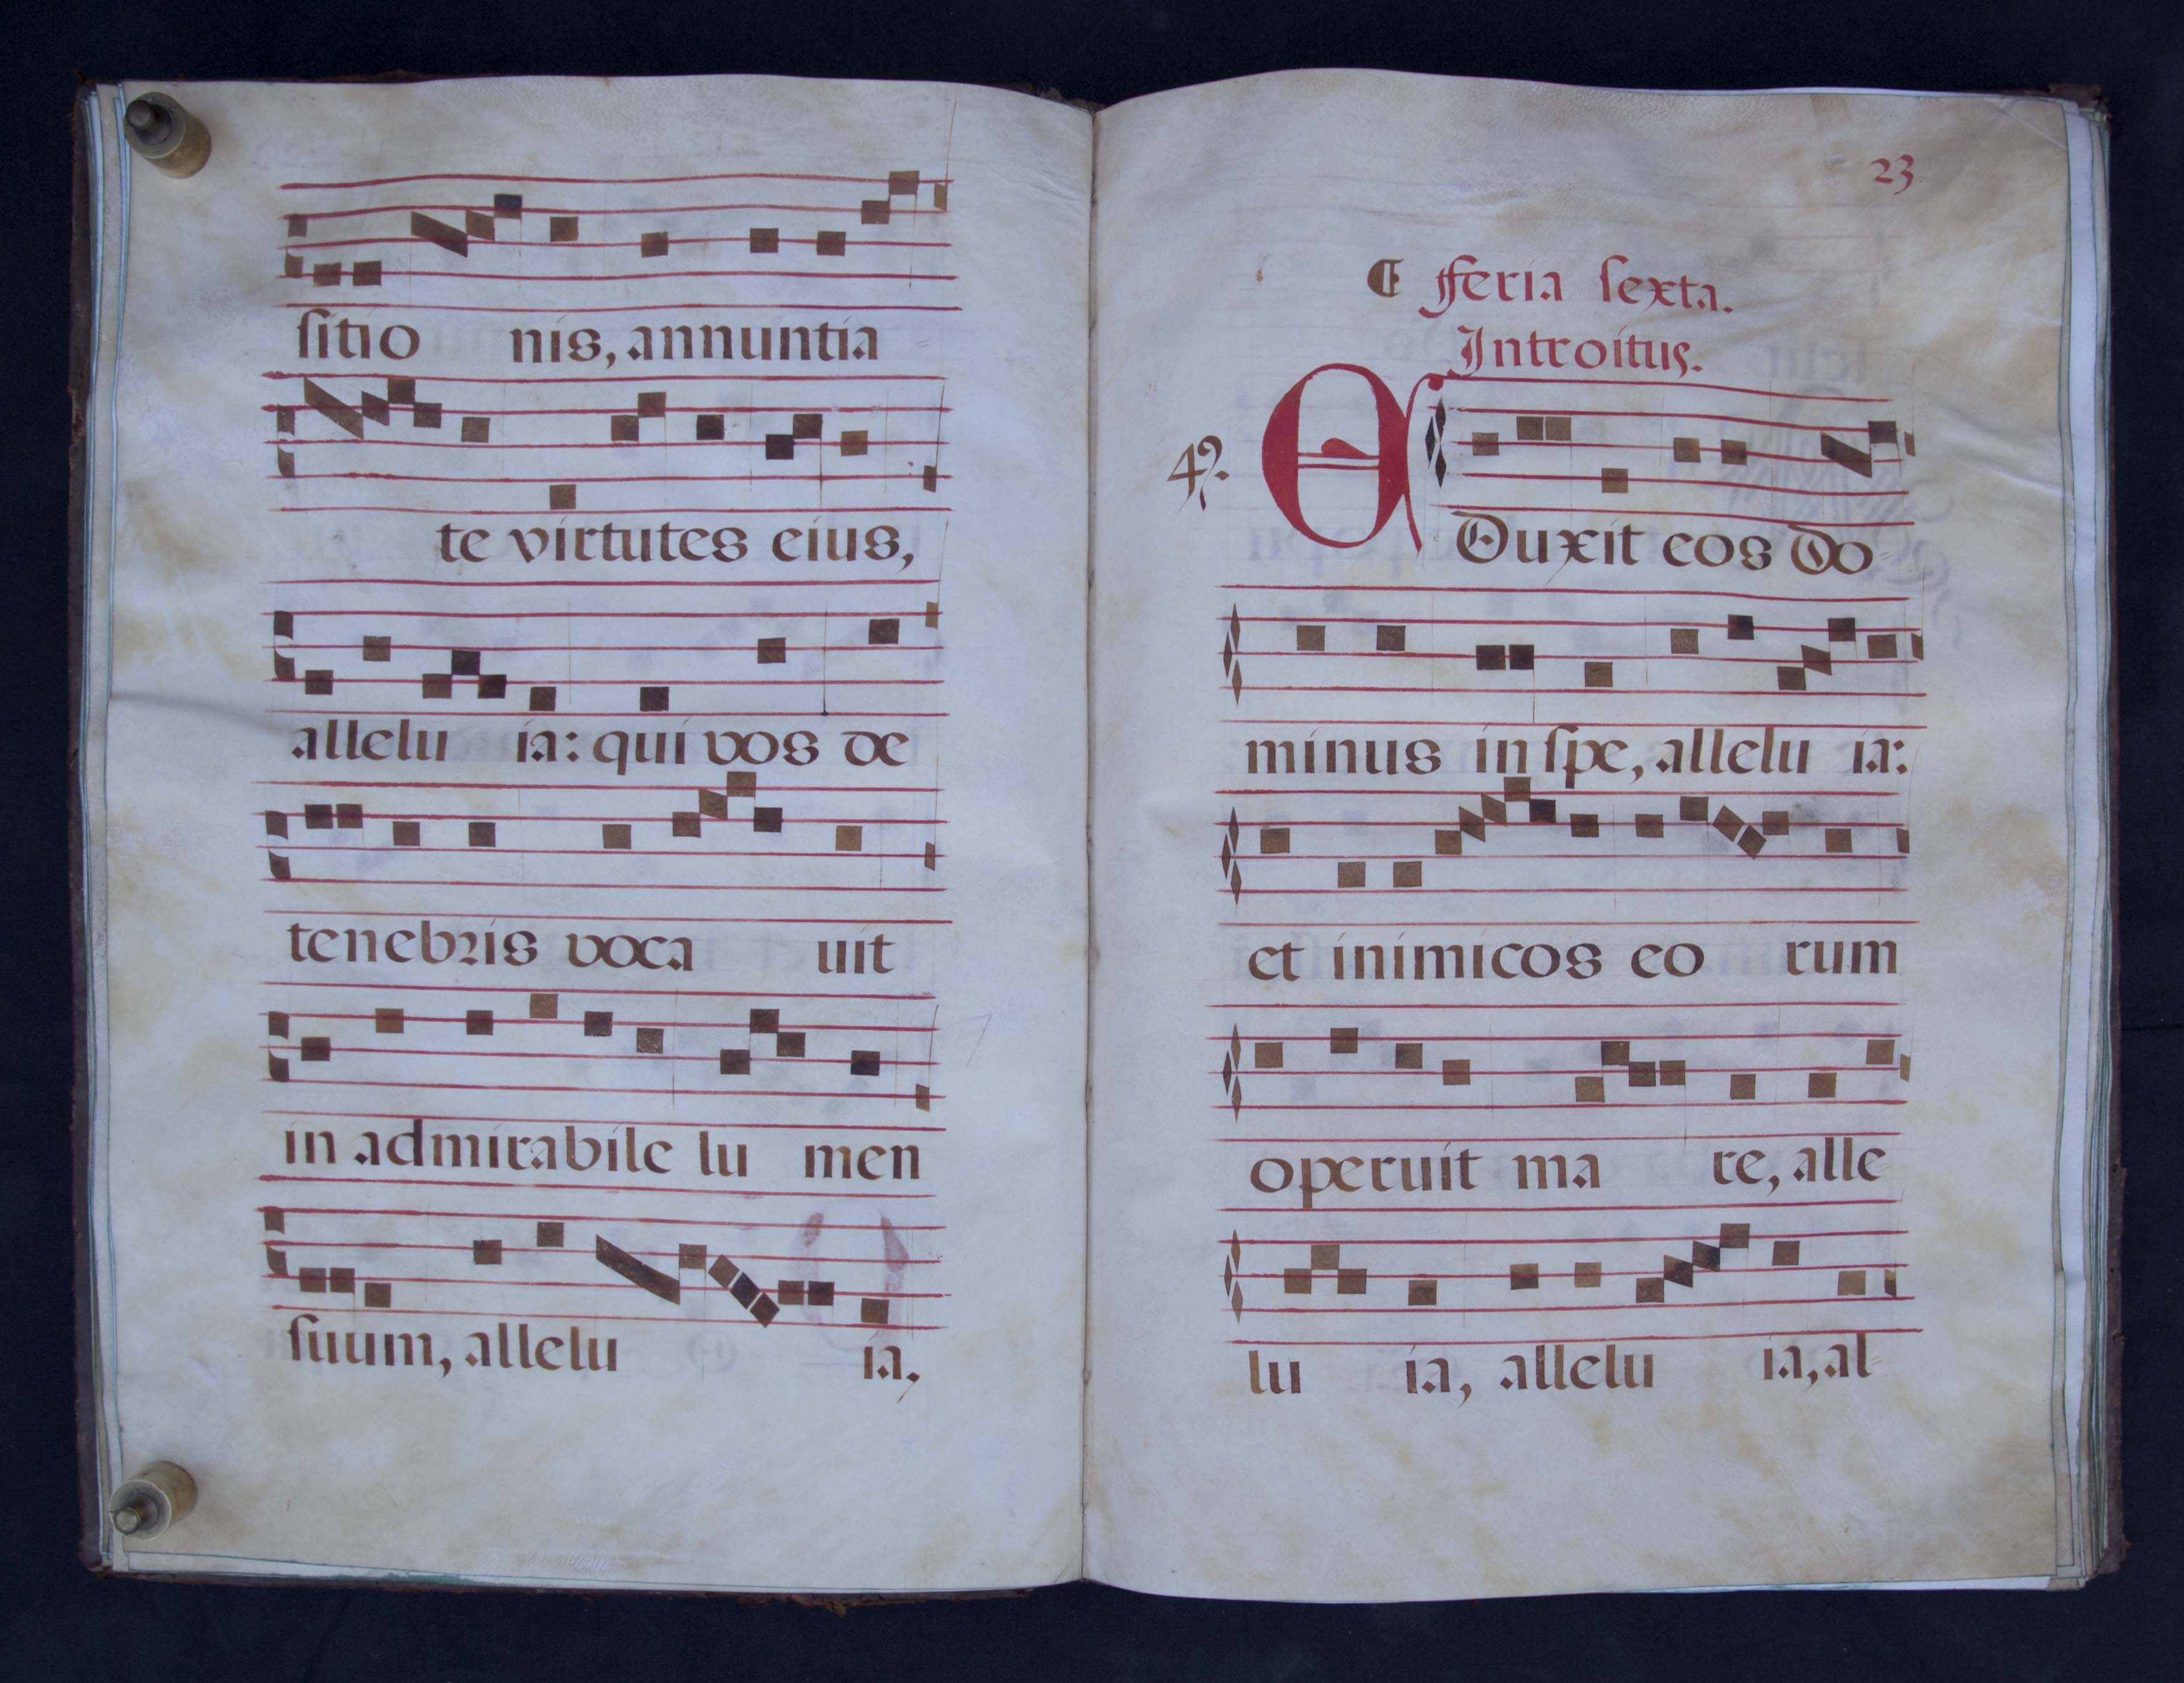 sitio nis, annuntia
te virtutes eius,
allelu ia: qui vos de
tenebris voca uit
in admirabile lu men
suum, allelu ia.
23
¶ Feria sexta.
Introitus.
4?.
EDuxit eos Do-
minus in spe, allelu ia:
et inimicos eo rum
operuit ma re, alle
lu ia, allelu ia, al-